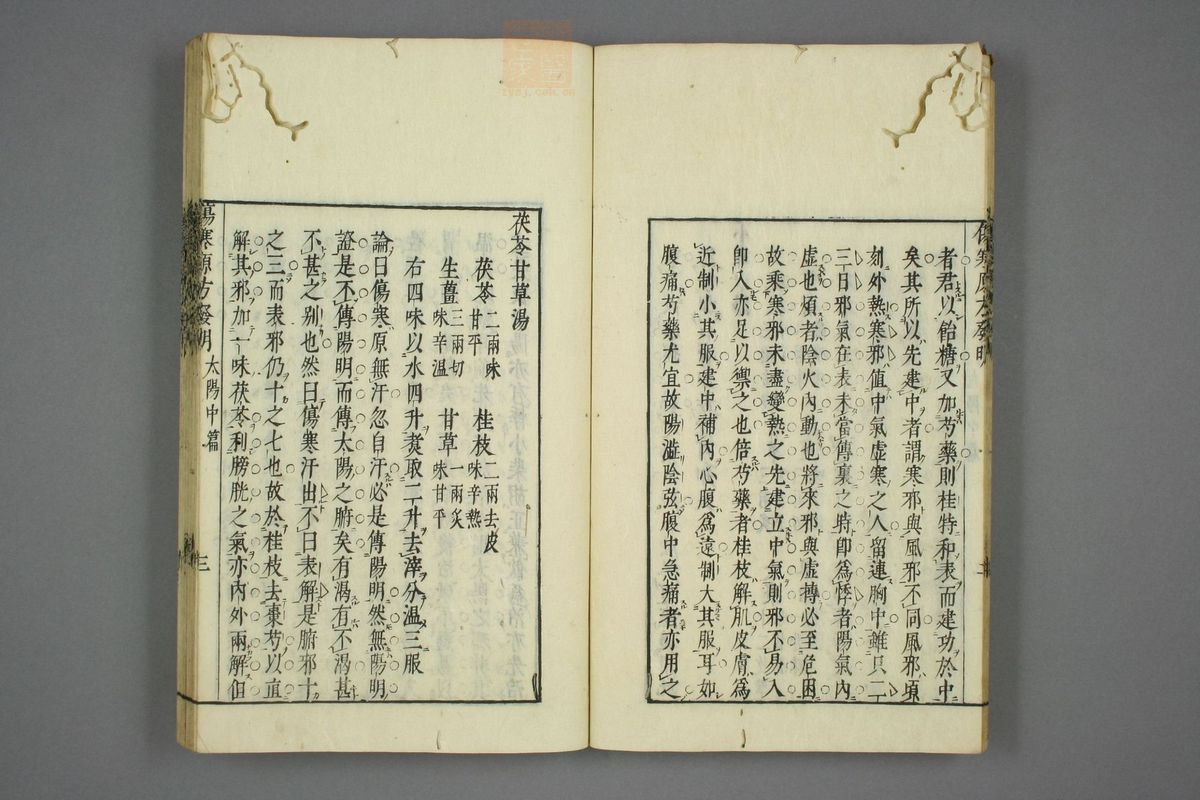 者君以飴糖又加芍藥則桂特和表而建功於中
矣其所以先建中者謂寒邪與風邪不同風邪頃
刻外熱寒邪值中氣虛寒之人留連胸中雖只二
三日邪氣在表未當傳裏之時卽爲悸者陽氣內
虛也煩者陰火內動也將來邪與虛摶必至危困
故乘寒邪未盡變熱之先建立中氣則邪不易入
卽入亦足以禦之也倍芍藥者桂枝解肌皮膚爲
近制小其服建中補內心腹爲遠制大其服耳如
腹痛芍藥尤宜故陽澁陰弦腹中急痛者亦用之
茯苓甘草湯
茯苓二兩味甘平 桂枝二兩去皮味辛熱
生薑三兩切味辛溫 甘草一兩炙味甘平
右四味以水四升煑取二升去滓分温三服
論曰傷寒原無汗忽自汗必是傳陽明然無陽明
證是不傳陽明而傳太陽之腑矣有渴有不渴甚
不甚之別也然曰傷寒汗出不曰表解是腑邪十
之三而表邪仍十之七也故於桂枝去棗芍以宜
解其邪加一味茯苓利膀胱之氣亦內外兩解但
傷寒原方發明 太陽中篇
三
zysj.com.cn